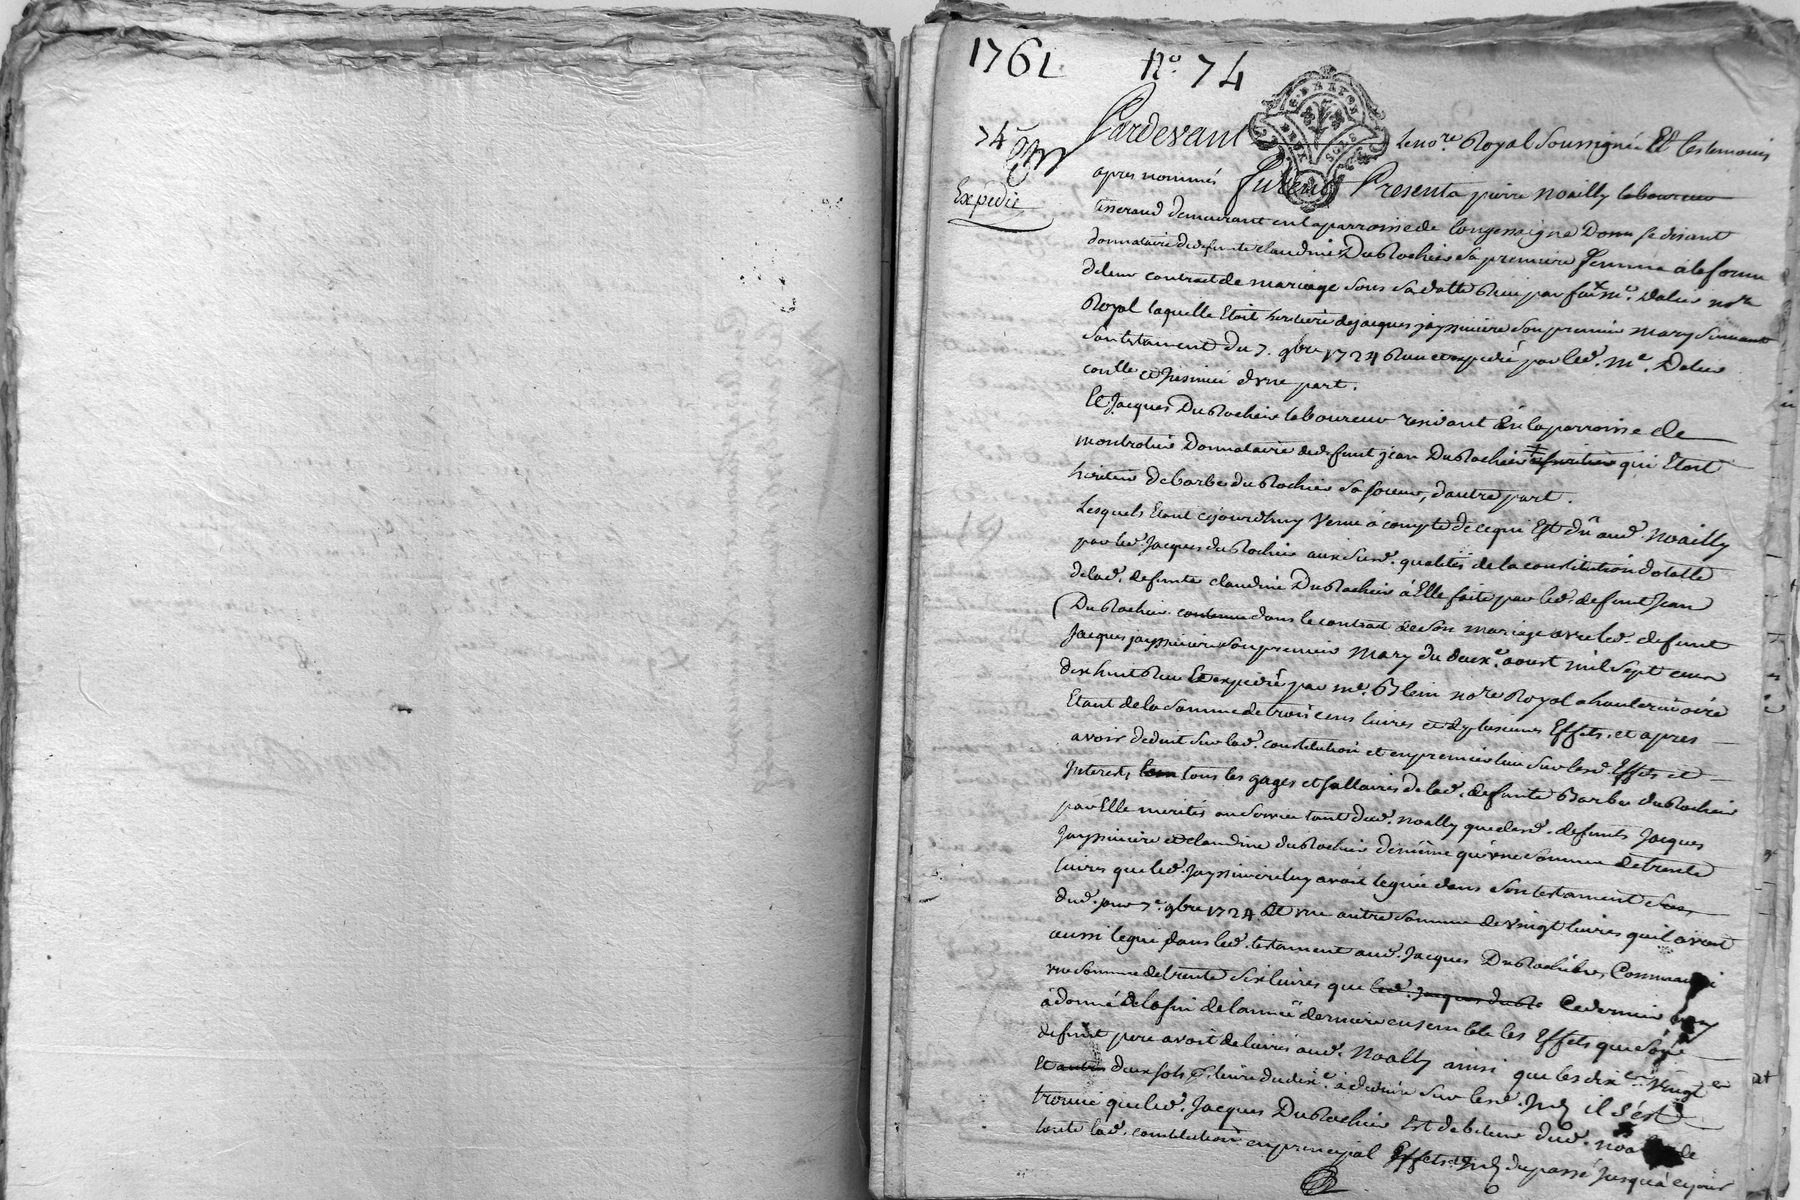 1761 no. 74
74e
Expedié
Pardevant le nore. Royal soussigné Et les temoins
apres nommés furent Present pierre noailly laboureur
tisserand demeurant en la parroisse de longessaigne Donn se disant
donnataire de defunte claudine DuRochier sa premiere femme a la forme
de leur contrat de mariage sous sa datte Reçu par feu me. Dalus nore
Royal laquelle Etoit heritiere de jacques jayssiniere son premier mary suivant
son testament du 7. 9bre 1724 Reçu et expedié par led. Me. Dalus
conlle et insinué d'vne part.
Et Jacques DuRochier laboureur residant En la parroisse de
montrotier Donnataire de defunt jean DuRochier qui Etoit
heritier de barbe du Rochier sa soeur, d'autre part.
Lesquels Etant cejourd'huy Venu a compte de ce qui Est dû aud. Noailly
par led. Jacques du Rochier aux susd. qualités de la constitution dotalle
de lad. defunte claudine DuRochier a Elle faite par led. defunt Jean
DuRochier contenue dans le contrat de son mariage avec led. defunt
Jacques jayssiniere son premier Mary du deuxe. aoust mil sept cent
dix huit Reçu Et expedié par me. Blein nore Royal a hauterivoire
Etant de la somme de trois cens livres et de plusieurs Effets, et apres
avoir deduit sur lad. constitution et en premier lieu sur lesd. Effets et
Interets tous les gages et sallaires de lad. defunte Barbe duRochier
par Elle merités au service tant dud. noally que desd. defunts Jacques
Jayssiniere et claudine duRochier de même qu'vne somme de trente
livres que led. Jayssiniere luy avoit leguée dans son testament
dud. jour 7e. 9bre 1724. Et vne autre somme de vingt livres qu'il avoit
aussi legué dans led. testament aud. Jacques DuRochier, Comme aussi
vne somme de trente six livres que led. Jacques duRo Ce dernier luy
a donné de la fin de l'année derniere ensemble les Effets que son
defunt pere avoit delivrés aud. Noally ainsi que les dixe. Vingte
Et autres deux sols p. livre du dixe. a deduire sur lesd. Int. il s'est
trouvé que led. Jacques DuRochier Est debiteur dud. noally de
toute lad. constitution en principal Effets et Int. du passé jusqu'a ce jour